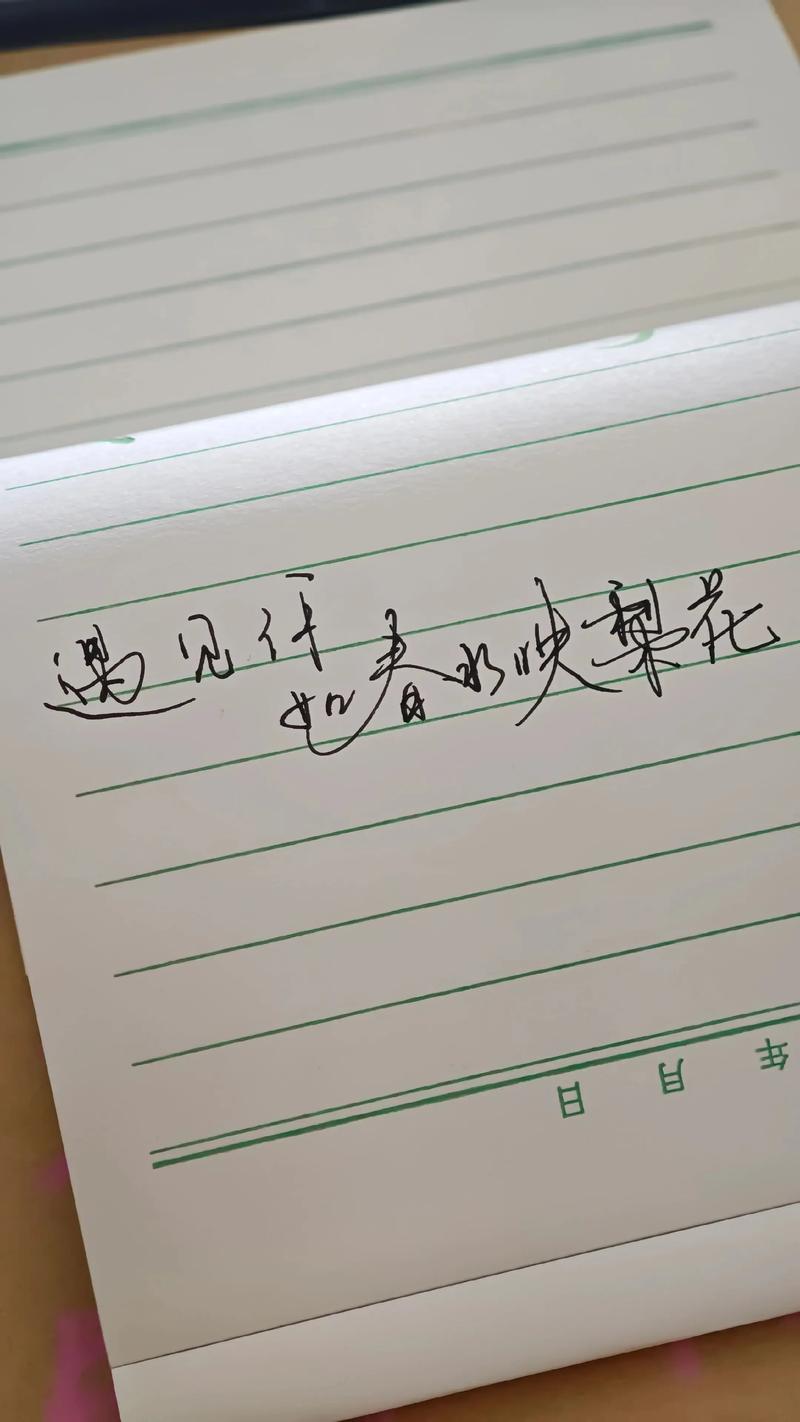 遇见你
如春水映梨花
年 月 日